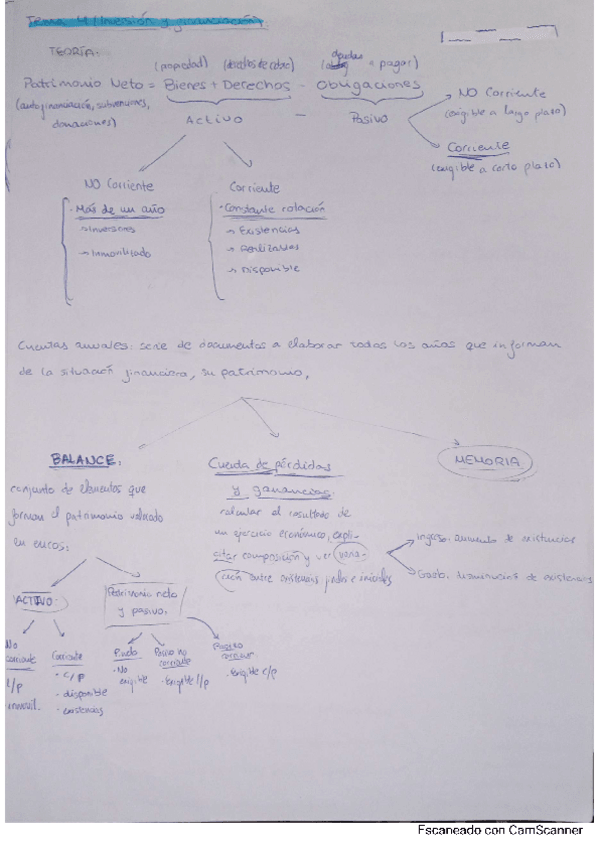 Tema 4 (Inversión y financiación)
TEORÍA:
(propiedad) (derechos de cobro) (deudas = pagar)
Patrimonio Neto = Bienes + Derechos - Obligaciones
(autofinanciación, subvenciones, donaciones)
Activo - Pasivo
NO Corriente
(exigible a largo plazo)
Corriente
(exigible a corto plazo)
NO Corriente
· Más de un año
→ Inversiones
→ Inmovilizado
Corriente
· Constante rotación
→ Existencias
→ Realizables
→ Disponible
Cuentas anuales: serie de documentos a elaborar todos los años que informan
de la situación financiera, su patrimonio,
BALANCE:
conjunto de elementos que
forman el patrimonio valorado
en euros.
Cuenta de pérdidas
y ganancias:
calcular el resultado de
un ejercicio económico, expli-
citar composición y ver varia-
ción entre existencias finales e iniciales
MEMORIA
Ingreso: aumento de existencias
Gasto: disminución de existencias
ACTIVO:
Patrimonio neto
y pasivo.
No corriente
L/P
inmovil.
Corriente
· C/P
· disponible
· existencias
· No exigible
Pasivo no corriente
· Exigible l/p
Pasivo corriente
· Exigible c/p
Escaneado con CamScanner